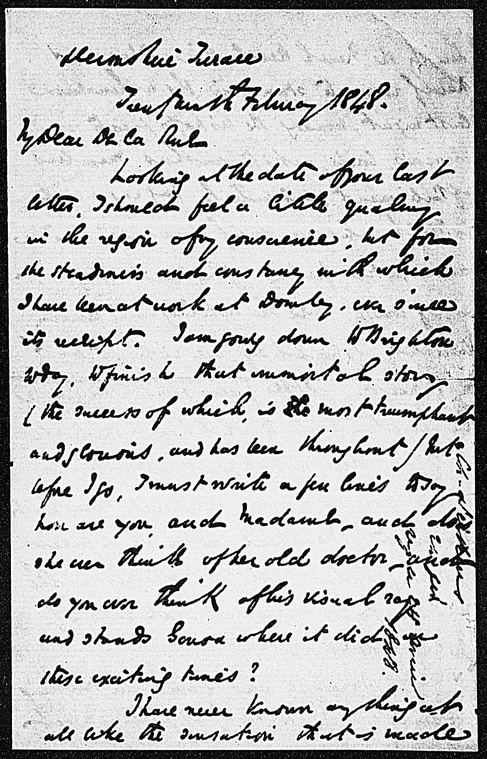 Devonshire Terrace
Twenty ninth February 1848.
My Dear De La Rue
Looking at the date of your last
letter, I should feel a little qualmy
in the region of my conscience, but for
the steadiness and constancy with which
I have been at work at Dombey, ever since
its receipt. I am going down to Brighton
today, to finish that immortal story
(the success of which, is the most triumphant
and glorious, and has been throughout) but
before I go, I must write a few lines to say
how are you, and Madame, and does
she ever think of her old doctor, and
do you ever think of his visual ray
and stands Genoa where it did in
these exciting times?
I have never known anything at
all like the sensation that is made
Ch. Dickens
1848.